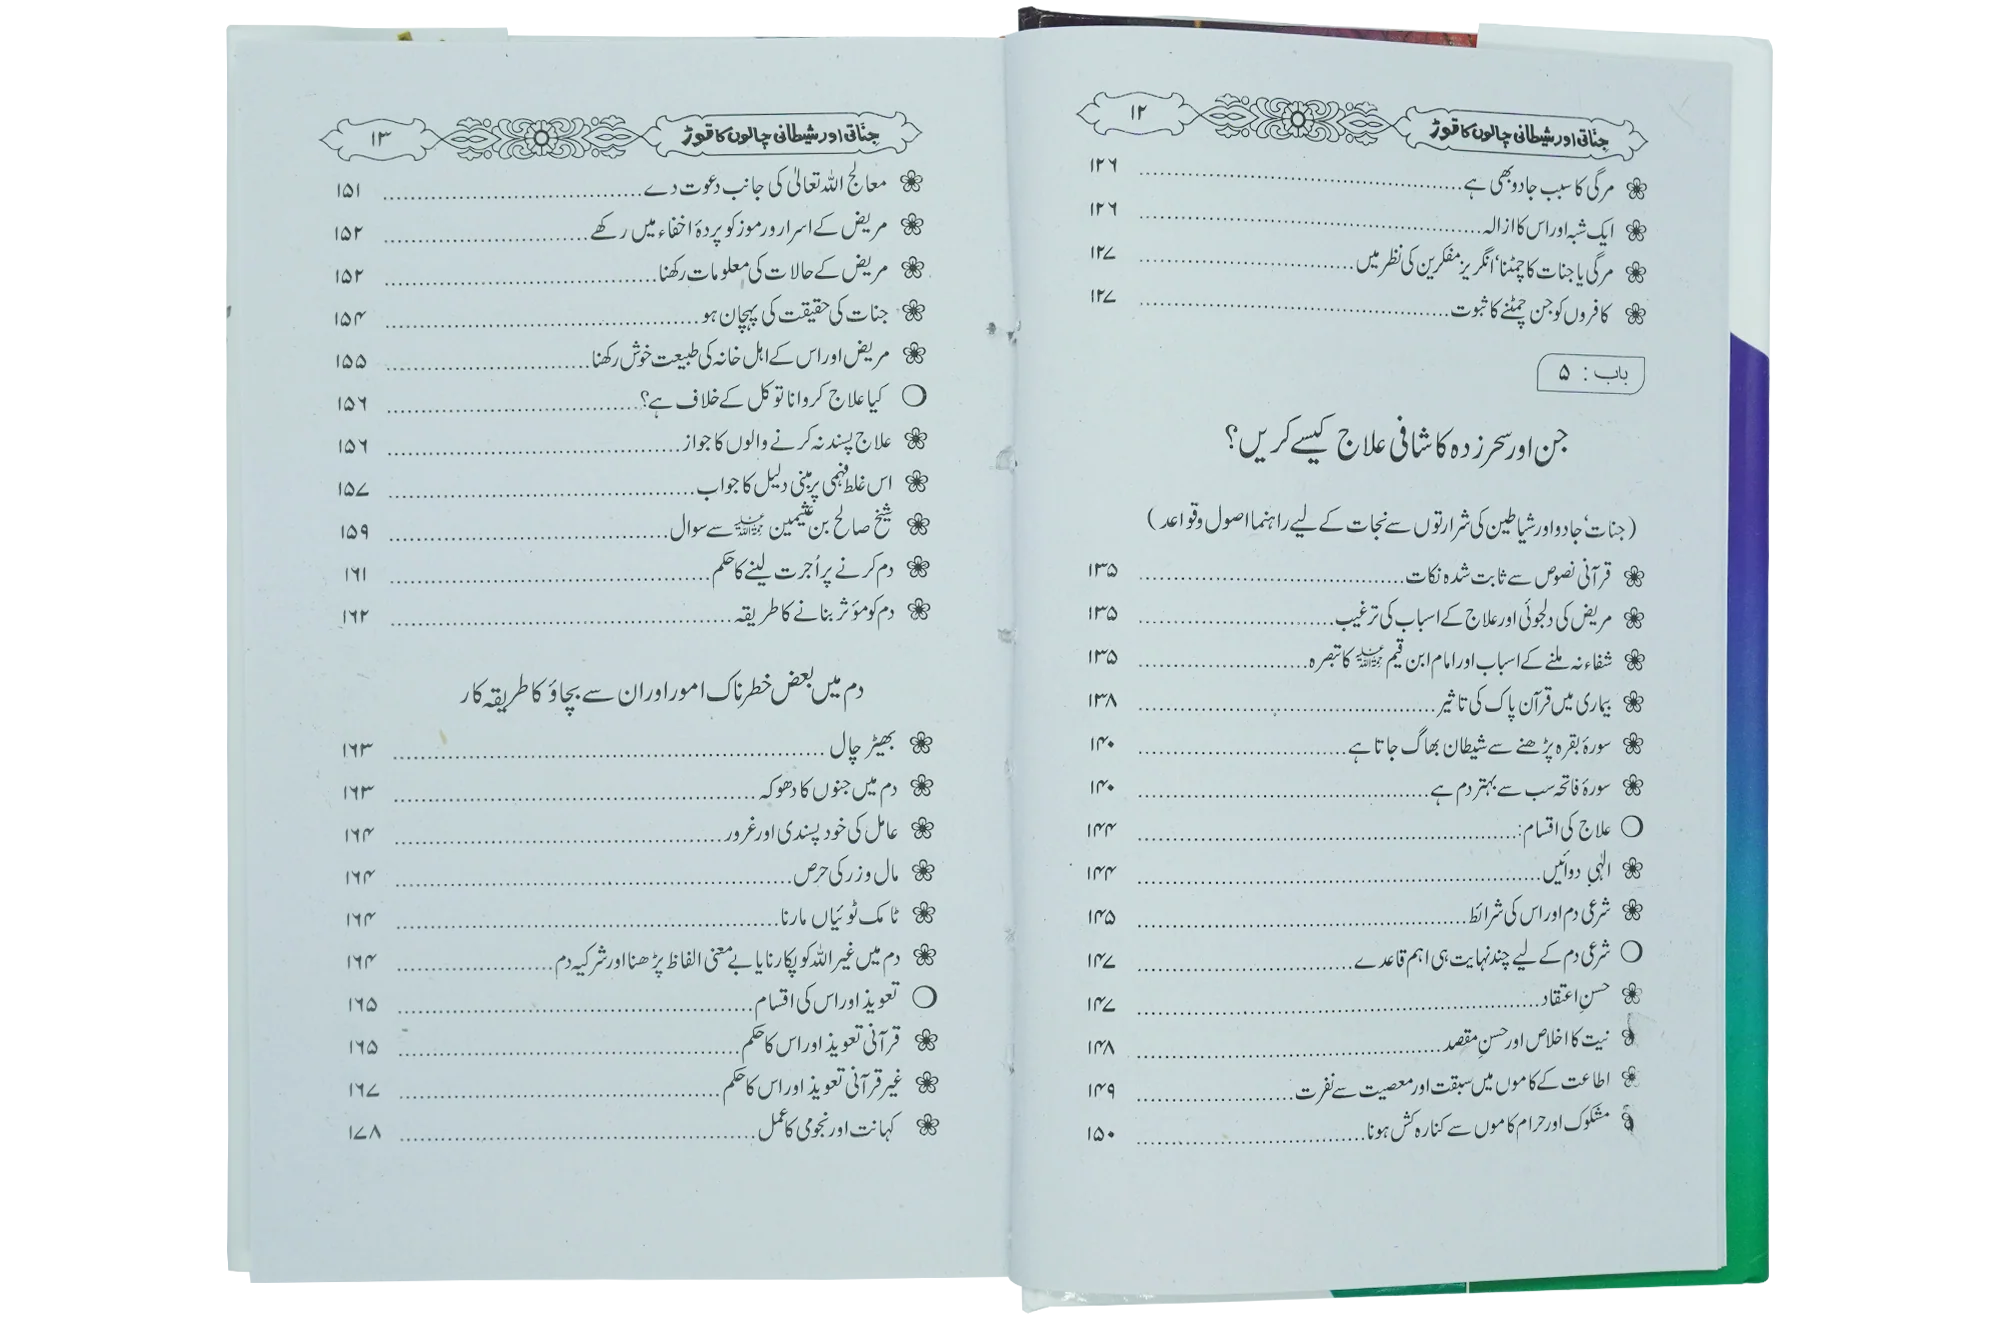 جناتی اور شیطانی چالوں کا توڑ ۱۲
مرگی کا سبب جادو بھی ہے ۱۲۶
ایک شبہ اور اس کا ازالہ ۱۲۶
مرگی یا جنات کا چمٹنا‘ انگریز مفکرین کی نظر میں ۱۲۷
کافروں کو جن چمٹنے کا ثبوت ۱۲۷
باب : ۵
جن اور سحر زدہ کا شافی علاج کیسے کریں؟
(جنات‘ جادو اور شیاطین کی شرارتوں سے نجات کے لیے راہنما اصول و قواعد)
قرآنی نصوص سے ثابت شدہ نکات ۱۳۵
مریض کی دلجوئی اور علاج کے اسباب کی ترغیب ۱۳۵
شفاء نہ ملنے کے اسباب اور امام ابن قیم رحمۃ اللہ علیہ کا تبصرہ ۱۳۵
بیماری میں قرآن پاک کی تاثیر ۱۳۸
سورۂ بقرہ پڑھنے سے شیطان بھاگ جاتا ہے ۱۴۰
سورۂ فاتحہ سب سے بہتر دم ہے ۱۴۰
علاج کی اقسام: ۱۴۴
الٰہی دوائیں ۱۴۴
شرعی دم اور اس کی شرائط ۱۴۵
شرعی دم کے لیے چند نہایت ہی اہم قاعدے ۱۴۷
حسنِ اعتقاد ۱۴۷
نیت کا اخلاص اور حسنِ مقصد ۱۴۸
اطاعت کے کاموں میں سبقت اور معصیت سے نفرت ۱۴۹
مشکوک اور حرام کاموں سے کنارہ کش ہونا ۱۵۰
جناتی اور شیطانی چالوں کا توڑ ۱۳
معالج اللہ تعالیٰ کی جانب دعوت دے ۱۵۱
مریض کے اسرار و رموز کو پردۂ اخفاء میں رکھے ۱۵۲
مریض کے حالات کی معلومات رکھنا ۱۵۲
جنات کی حقیقت کی پہچان ہو ۱۵۴
مریض اور اس کے اہل خانہ کی طبیعت خوش رکھنا ۱۵۵
کیا علاج کروانا توکل کے خلاف ہے؟ ۱۵۶
علاج پسند نہ کرنے والوں کا جواز ۱۵۶
اس غلط فہمی پر مبنی دلیل کا جواب ۱۵۷
شیخ صالح بن عثیمین رحمۃ اللہ علیہ سے سوال ۱۵۹
دم کرنے پر اُجرت لینے کا حکم ۱۶۱
دم کو مؤثر بنانے کا طریقہ ۱۶۲
دم میں بعض خطرناک امور اور ان سے بچاؤ کا طریقہ کار
بھیڑ چال ۱۶۳
دم میں جنوں کا دھوکہ ۱۶۳
عامل کی خود پسندی اور غرور ۱۶۴
مال و زر کی حرص ۱۶۴
ٹامک ٹوئیاں مارنا ۱۶۴
دم میں غیر اللہ کو پکارنا یا بے معنی الفاظ پڑھنا اور شرکیہ دم ۱۶۴
تعویذ اور اس کی اقسام ۱۶۵
قرآنی تعویذ اور اس کا حکم ۱۶۵
غیر قرآنی تعویذ اور اس کا حکم ۱۶۷
کہانت اور نجومی کا عمل ۱۷۸